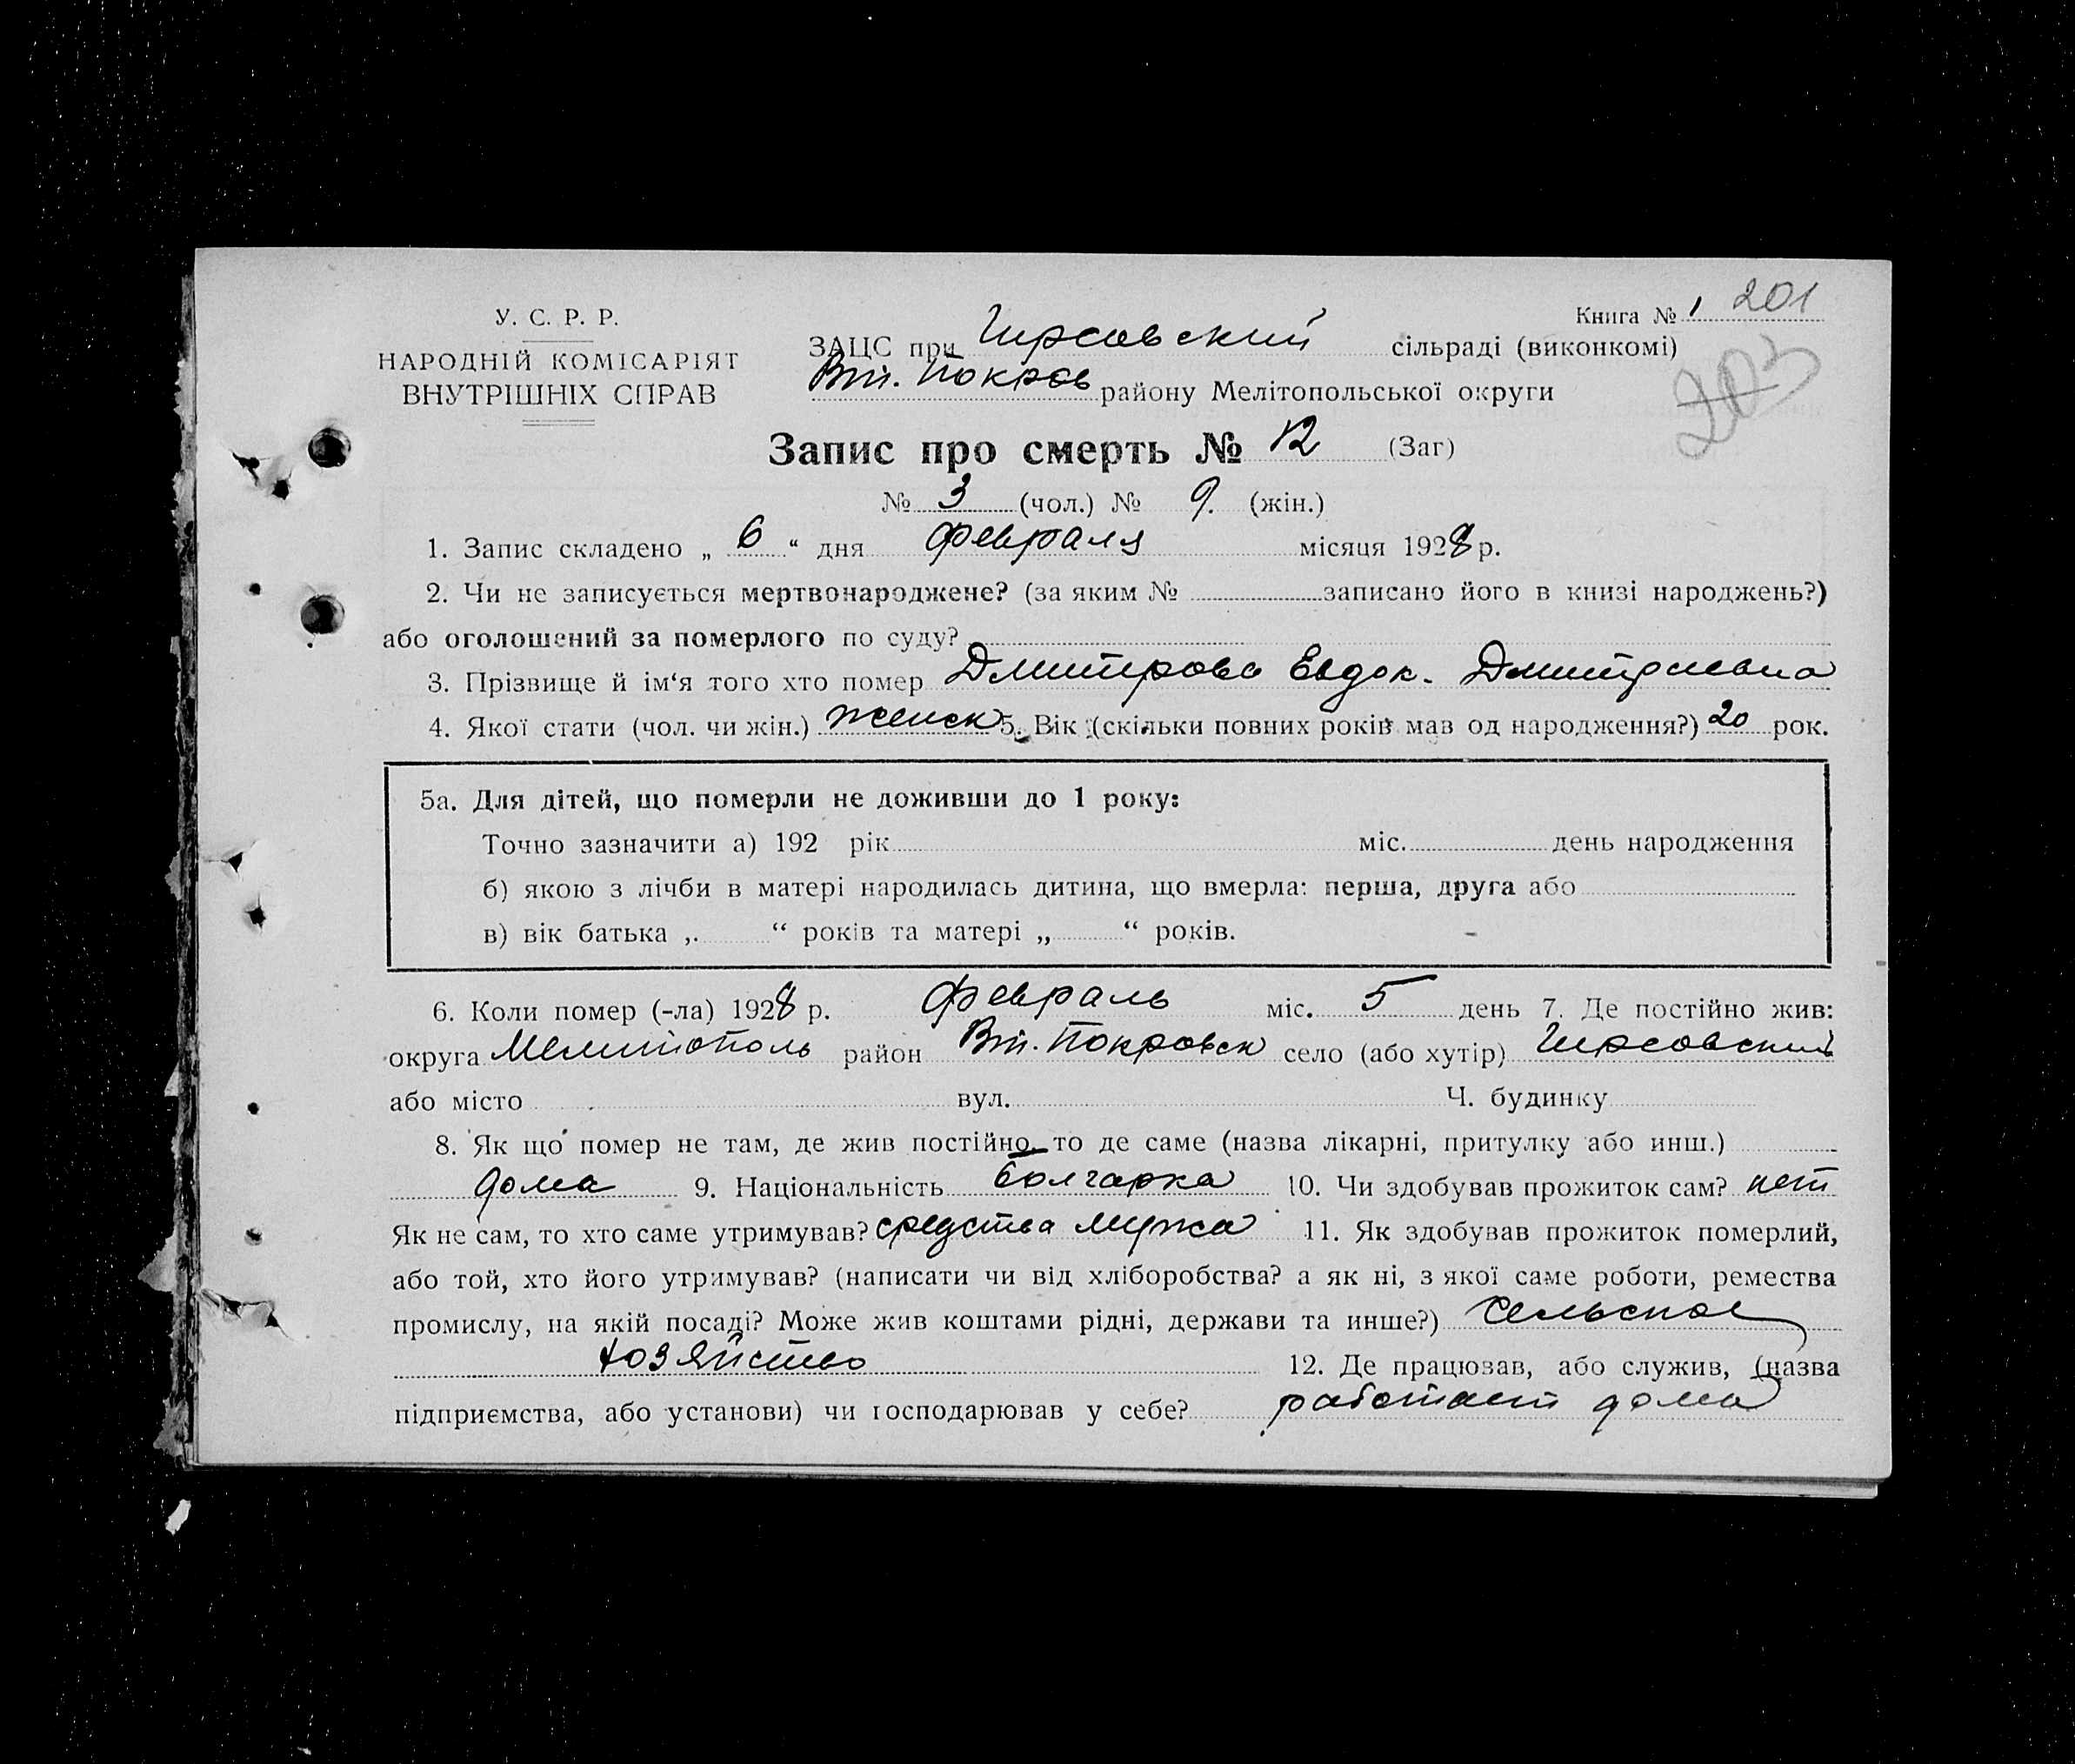 Книга № 1 201
203
У. С. Р. Р.
НАРОДНІЙ КОМІСАРІЯТ
ВНУТРІШНІХ СПРАВ
ЗАЦС при Гирсовский сільраді (виконкомі)
Вт. Покров району Мелітопольської округи
Запис про смерть № 12 (Заг)
№ 3 (чол.) № 9. (жін.)
1. Запис складено „ 6 “ дня февраля місяця 1928 р.
2. Чи не записується мертвонароджене? (за яким № записано його в книзі народжень?)
або оголошений за померлого по суду?
3. Прізвище й ім‘я того хто помер Дмитрова Евдок. Дмитриевна
4. Якої стати (чол. чи жін.) женск 5. Вік (скільки повних років мав од народження?) 20 рок.
5а. Для дітей, що померли не доживши до 1 року:
Точно зазначити а) 192 рік міс. день народження
б) якою з лічби в матері народилась дитина, що вмерла: перша, друга або
в) вік батька „ “ років та матері „ “ років.
6. Коли помер (-ла) 1928 р. февраль міс. 5 день 7. Де постійно жив:
округа Мелитополь район Вт. Покровск село (або хутір) Гирсовский
або місто вул. Ч. будинку
8. Як що помер не там, де жив постійно, то де саме (назва лікарні, притулку або инш.)
дома 9. Національність болгарка 10. Чи здобував прожиток сам? нет
Як не сам, то хто саме утримував? средства мужа 11. Як здобував прожиток померлий,
або той, хто його утримував? (написати чи від хліборобства? а як ні, з якої саме роботи, ремества
промислу, на якій посаді? Може жив коштами рідні, держави та инше?) Сельское
хозяйство 12. Де працював, або служив, (назва
підприємства, або установи) чи господарював у себе? работает дома